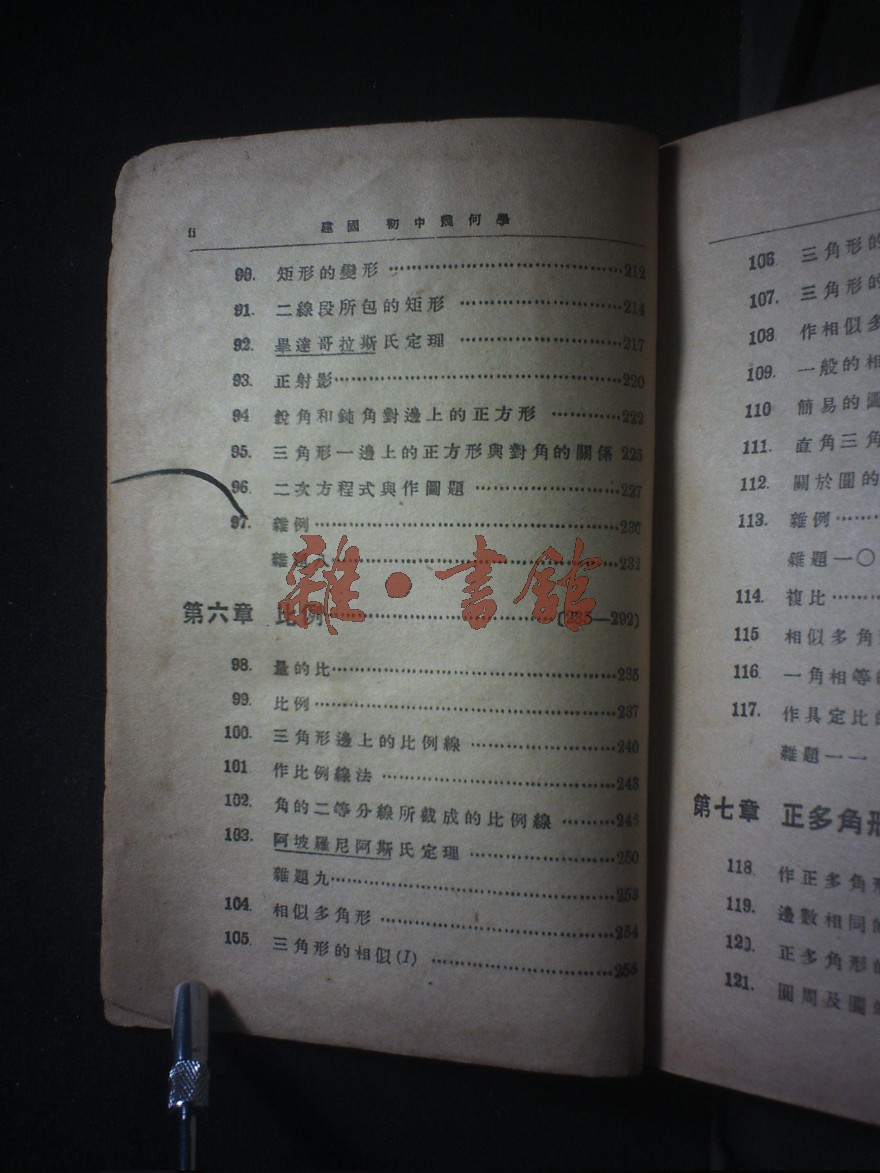 ii 建國 初中幾何學
90. 矩形的變形 ……212
91. 二線段所包的矩形 ……214
92. 畢達哥拉斯氏定理 ……217
93. 正射影……220
94 銳角和鈍角對邊上的正方形 ……222
95. 三角形一邊上的正方形與對角的關係 225
96. 二次方程式與作圖題 ……227
97. 雜例……230
雜題八……232
雜·書館
第六章 比例……(235—292)
98. 量的比……235
99. 比例……237
100. 三角形邊上的比例線 ……240
101 作比例線法 ……243
102. 角的二等分線所截成的比例線 ……246
103. 阿坡羅尼阿斯氏定理 ……250
雜題九……253
104. 相似多角形 ……254
105. 三角形的相似(I) ……256
106 三角形的
107. 三角形的
108 作相似多
109. 一般的相
110 簡易的
111. 直角三角
112. 關於圓的
113. 雜例……
雜題一〇
114. 複比……
115 相似多角
116. 一角相等的
117. 作具定比的
雜題一一
第七章 正多角形
118. 作正多角形
119. 邊數相同的
120. 正多角形的
121. 圓周及圓的